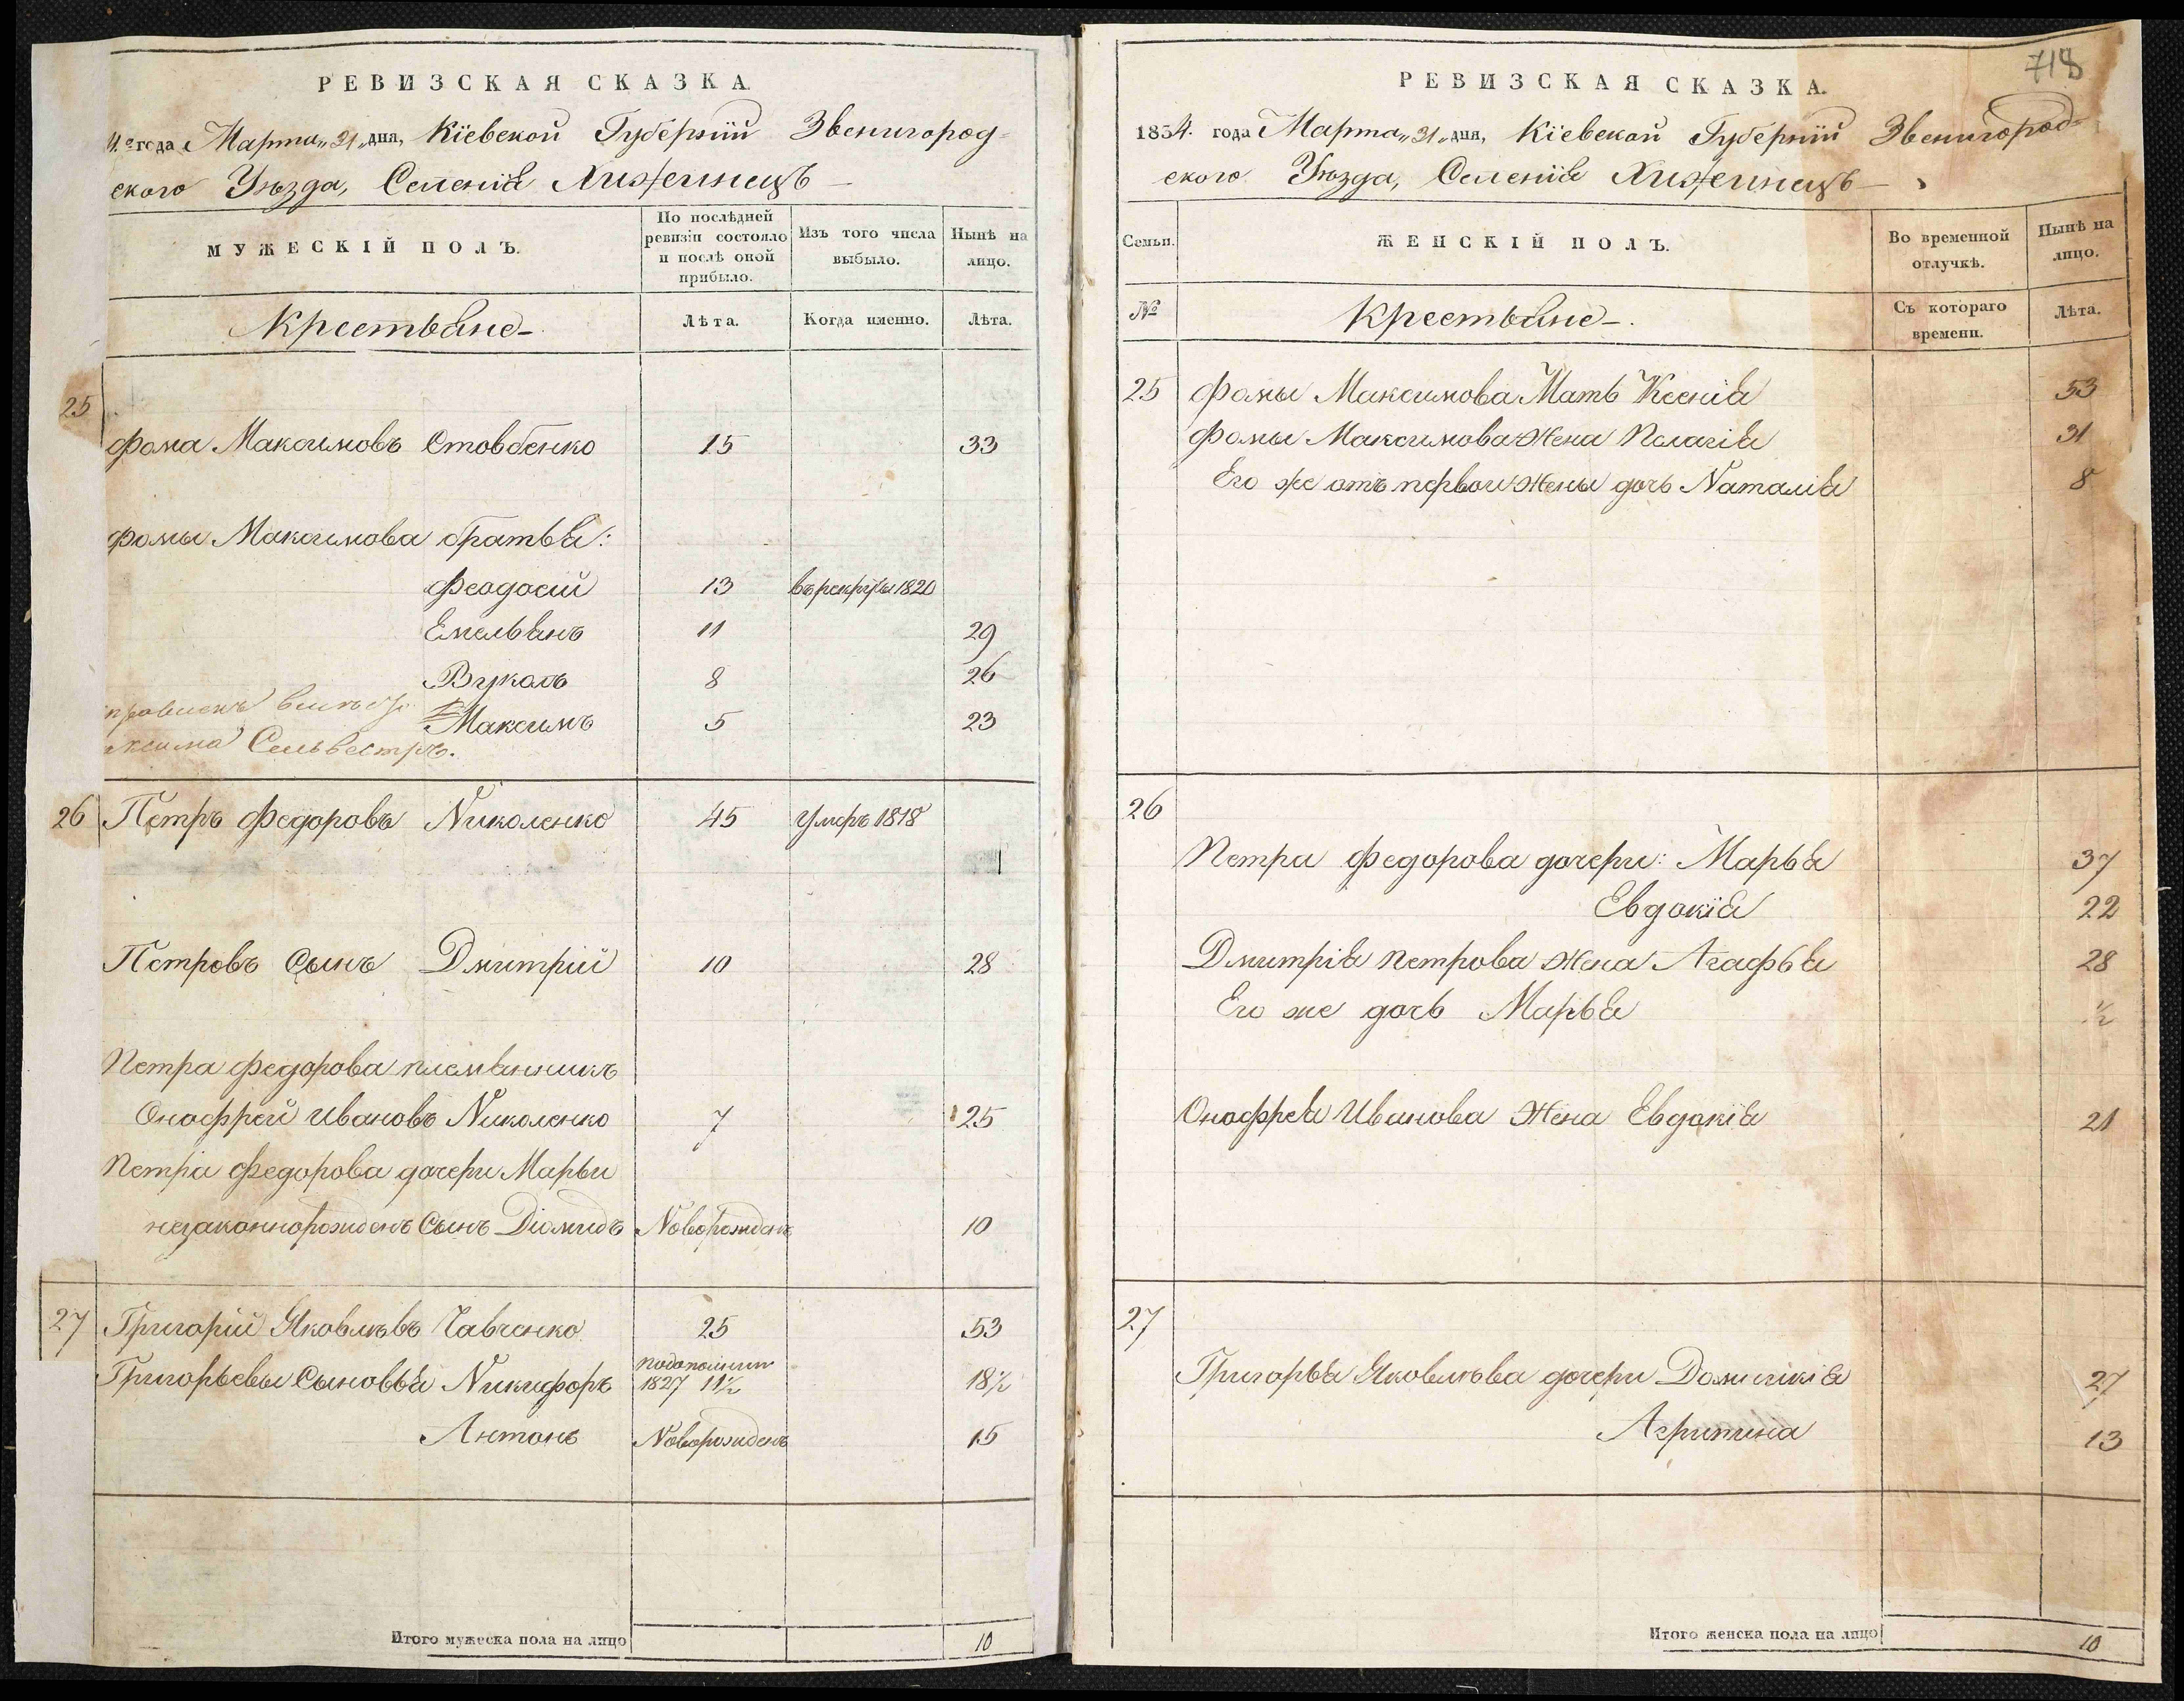 РЕВИЗСКАЯ СКАЗКА.
4.го года Марта „31„ дня, Кіевской Губерніи Звенигород-
ского Уѣзда, Селенія Хижинецъ
МУЖЕСКІЙ ПОЛЪ.
По послѣдней ревизіи состояло и послѣ оной прибыло.
Изъ того числа выбыло.
Нынѣ на лицо.
Крестьяне
Лѣта.
Когда именно.
Лѣта.
25
Фома Максимовъ Стовбенко 15 33
Фомы Максимова братья:
Феодосій 13 въ рекруты 1820
Емельянъ 11 29
Вуколъ 8 26
Максимъ 5 23
Сельвестръ.
26 Петръ Федоровъ Николенко 45 Умеръ 1818
Петровъ Сынъ Дмитрій 10 28
Петра Федорова племянникъ
Онофрей Ивановъ Николенко 7 25
Петра Федорова дочери Марьи
незаконнорожденъ Сынъ Діомидъ Новорожденъ 10
27 Григорій Яковлѣвъ Чавченко 25 53
Григорьевы Сыновья Никифоръ 1827 11½ 18½
Антонъ Новорожденъ 15
Итого мужеска пола на лицо 10
718
РЕВИЗСКАЯ СКАЗКА.
1834. года Марта „31„ дня, Кіевской Губерніи Звенигород-
ского Уѣзда, Селенія Хижинецъ
Семьи.
ЖЕНСКІЙ ПОЛЪ.
Во временной отлучкѣ.
Нынѣ на лицо.
№
Крестьяне
Съ котораго времени.
Лѣта.
25 Фомы Максимова Мать Ксенія 53
Фомы Максимова Жена Пелагія 31
Его же отъ первой Жены дочь Наталія 8
26
Петра Федорова дочери: Марья 37
Евдокія 22
Дмитрія Петрова Жена Агафья 28
Его же дочь Марья ½
Онофрея Иванова Жена Евдокія 21
27
Григорья Яковлѣва дочери Домникія 27
Агрипина 13
Итого женска пола на лицо 10